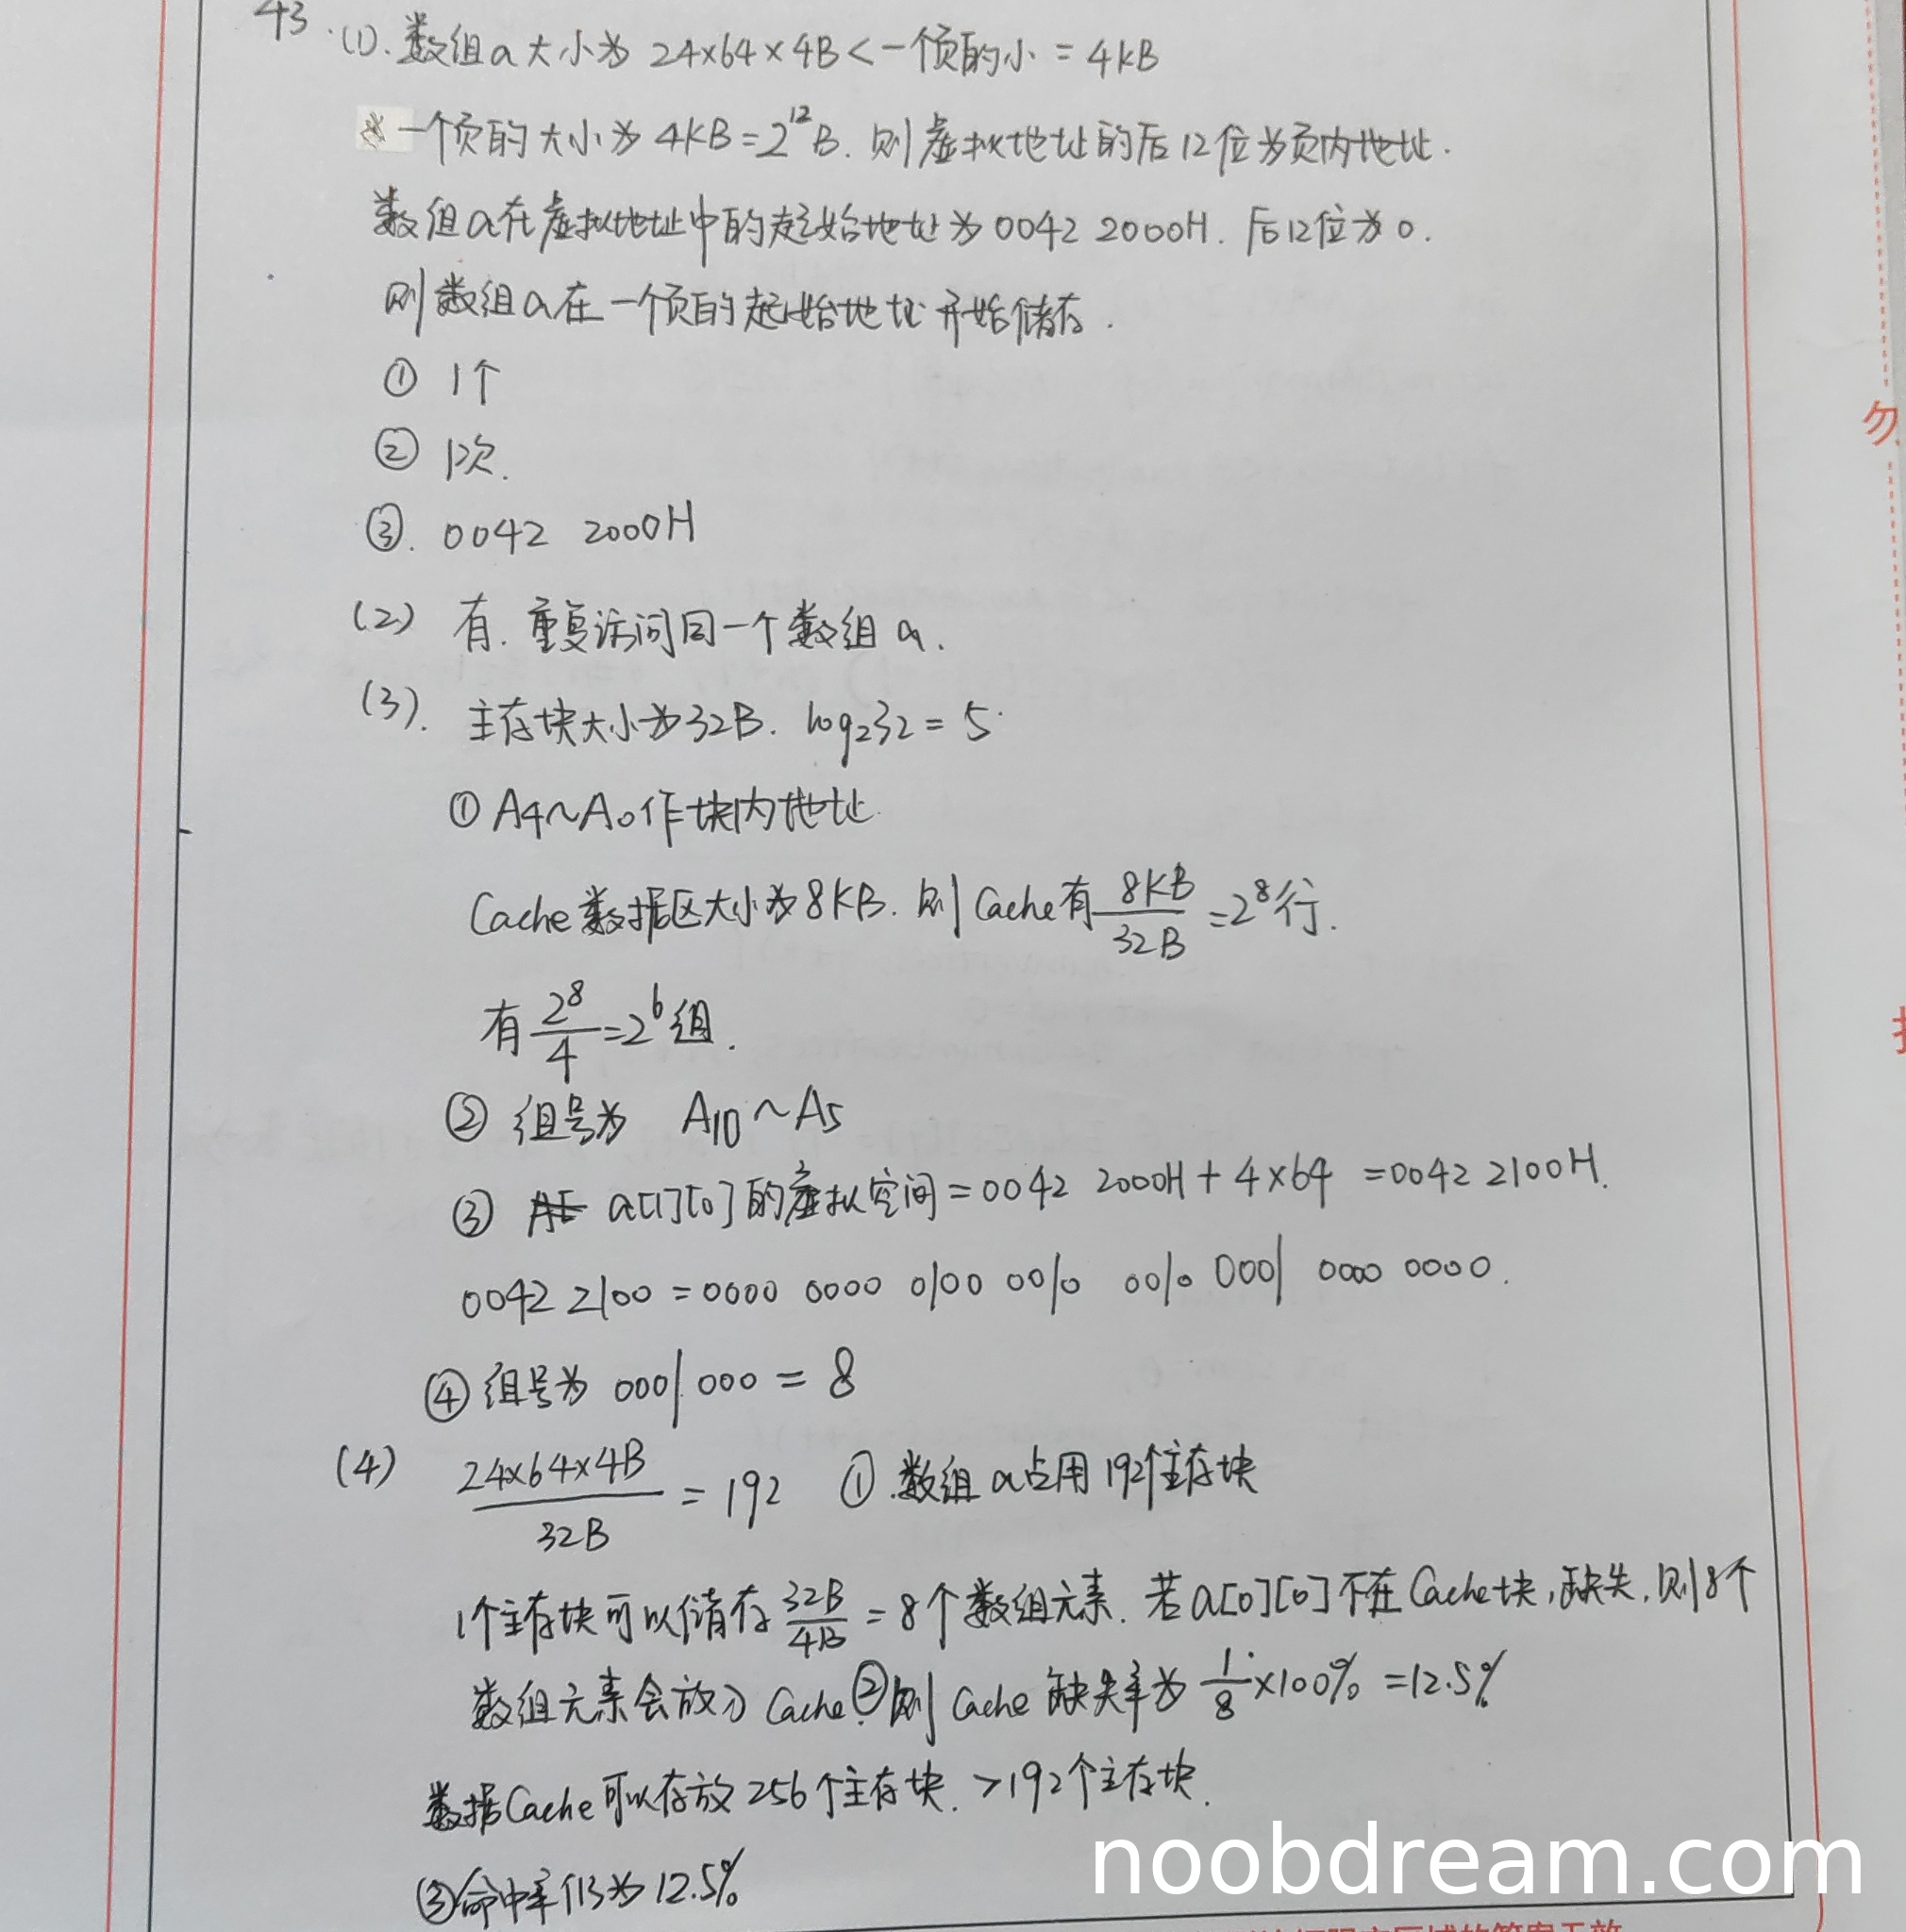 43.(1).数组a大小为 24×64×4B<一个页的小=4kB
一个页的大小为4KB=2^12B.则虚拟地址的后12位为页内地址.
数组a在虚拟地址中的起始地址为0042 2000H.后12位为0.
则数组a在一个页的起始地址开始储存.
① 1个
② 1次.
③. 0042 2000H
(2) 有.重复访问同一个数组a.
(3). 主存块大小为32B. log₂32=5
① A4~A0作块内地址
Cache数据区大小为8KB.则Cache有 8KB/32B =2^8行.
有 2^8/4 =2^6组.
② 组号为 A10~A5
③ a[1][0]的虚拟空间=0042 2000H+4×64 =0042 2100H.
0042 2100=0000 0000 0100 0010 0010 0001 0000 0000.
④ 组号为 0001000 = 8
(4) 24×64×4B/32B = 192 ①.数组a占用192个主存块
1个主存块可以储存 32B/4B =8个数组元素.若a[0][0]不在Cache块,缺失,则8个
数组元素会放入Cache.②则Cache缺失率为 1/8×100% =12.5%
数据Cache可以存放256个主存块.>192个主存块.
③命中率仍为12.5%
勿
noobdream.com